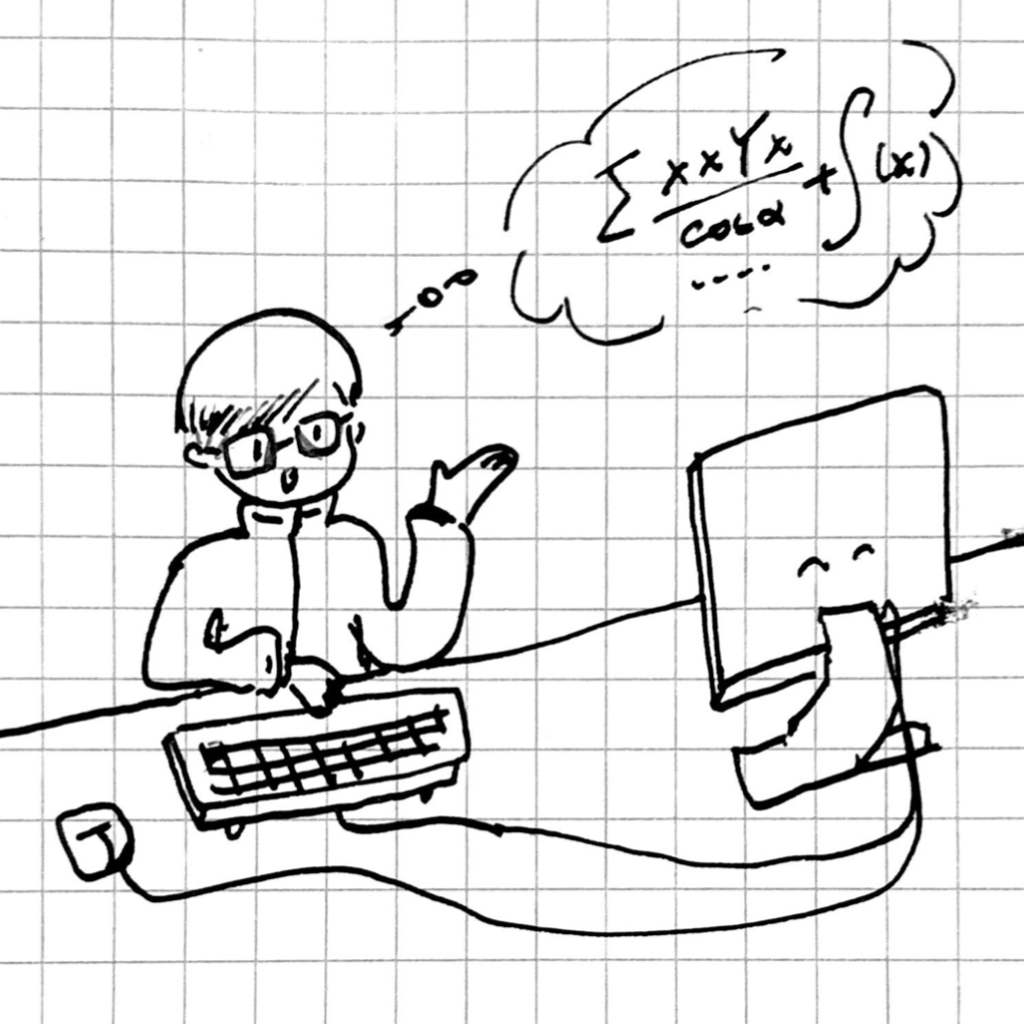 ∑ xxYx/cosα + ∫(x)
.....